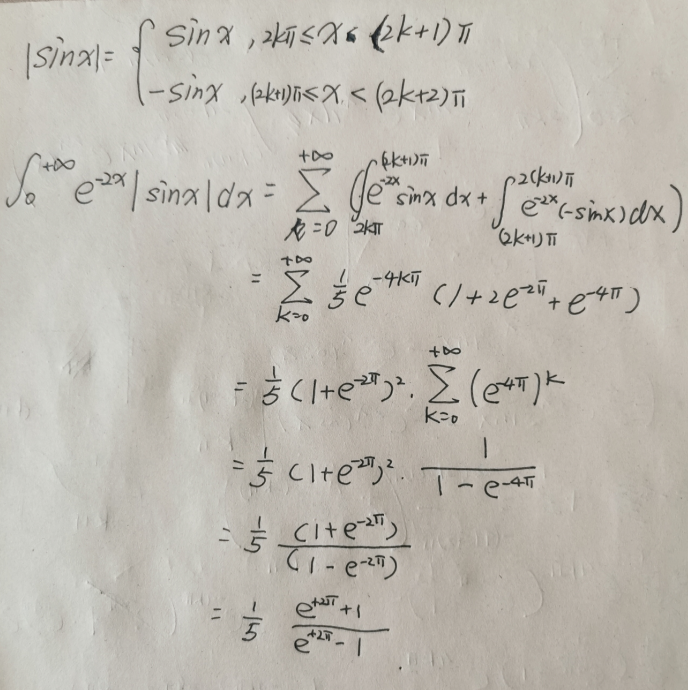 |sinx| = { sinx , 2kπ ≤ x < (2k+1)π
-sinx , (2k+1)π ≤ x < (2k+2)π
∫₀^{+∞} e^{-2x} |sinx| dx = ∑_{k=0}^{+∞} (∫_{2kπ}^{(2k+1)π} e^{-2x} sinx dx + ∫_{(2k+1)π}^{2(k+1)π} e^{-2x} (-sinx) dx)
= ∑_{k=0}^{+∞} 1/5 e^{-4kπ} (1 + 2e^{-2π} + e^{-4π})
= 1/5 (1+e^{-2π})² · ∑_{k=0}^{+∞} (e^{-4π})^k
= 1/5 (1+e^{-2π})² · 1/(1 - e^{-4π})
= 1/5 (1+e^{-2π})/(1 - e^{-2π})
= 1/5 (e^{+2π} + 1)/(e^{+2π} - 1)